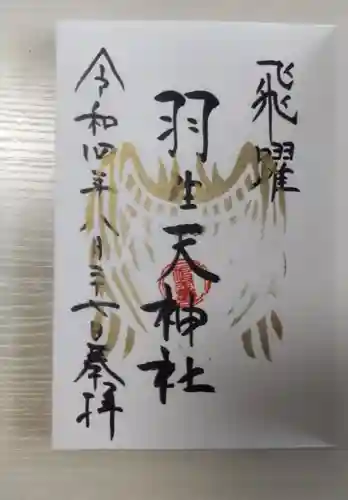 飛躍
羽生天神社
令和四年八月二十七日奉拝